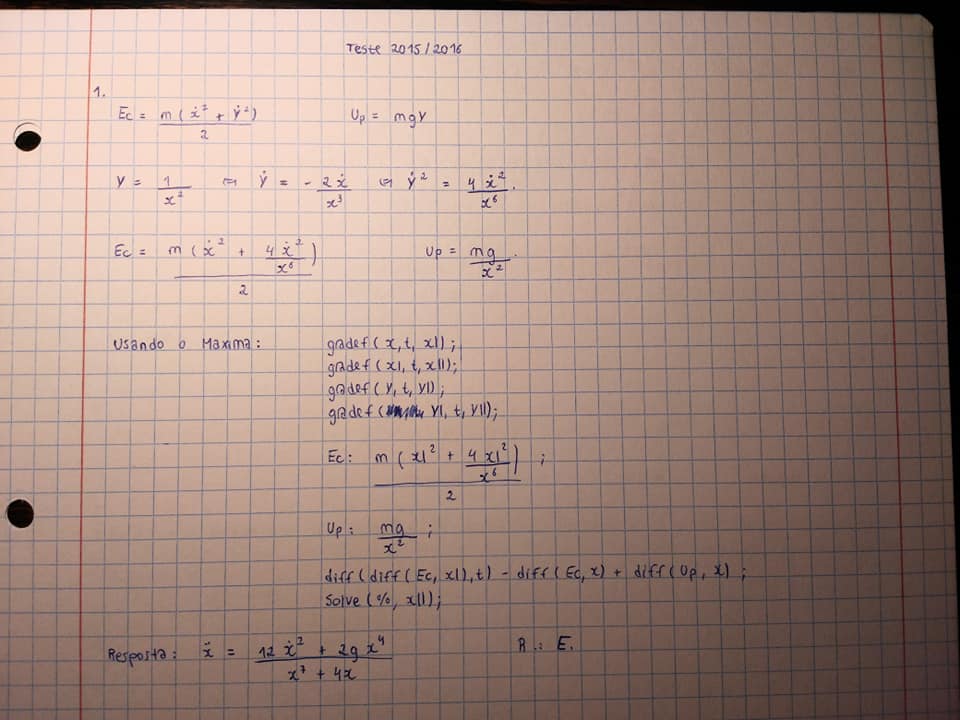 Teste 2015/2016
1.
Ec = m(ẋ² + ẏ²)/2    Up = mgy
y = 1/x² ⇔ ẏ = - 2ẋ/x³ ⇔ ẏ² = 4ẋ²/x⁶.
Ec = m(ẋ² + 4ẋ²/x⁶)/2    Up = mg/x².
Usando o Maxima: gradef(x, t, x1);
gradef(x1, t, x11);
gradef(y, t, y1);
gradef( y1, t, y11);
Ec: m(x1² + 4x1²/x⁶)/2 ;
Up: mg/x² ;
diff(diff(Ec, x1), t) - diff(Ec, x) + diff(Up, x) ;
Solve(%, x11);
Resposta: ẍ = (12ẋ² + 2gx⁴)/(x⁷ + 4x)    R.: E.